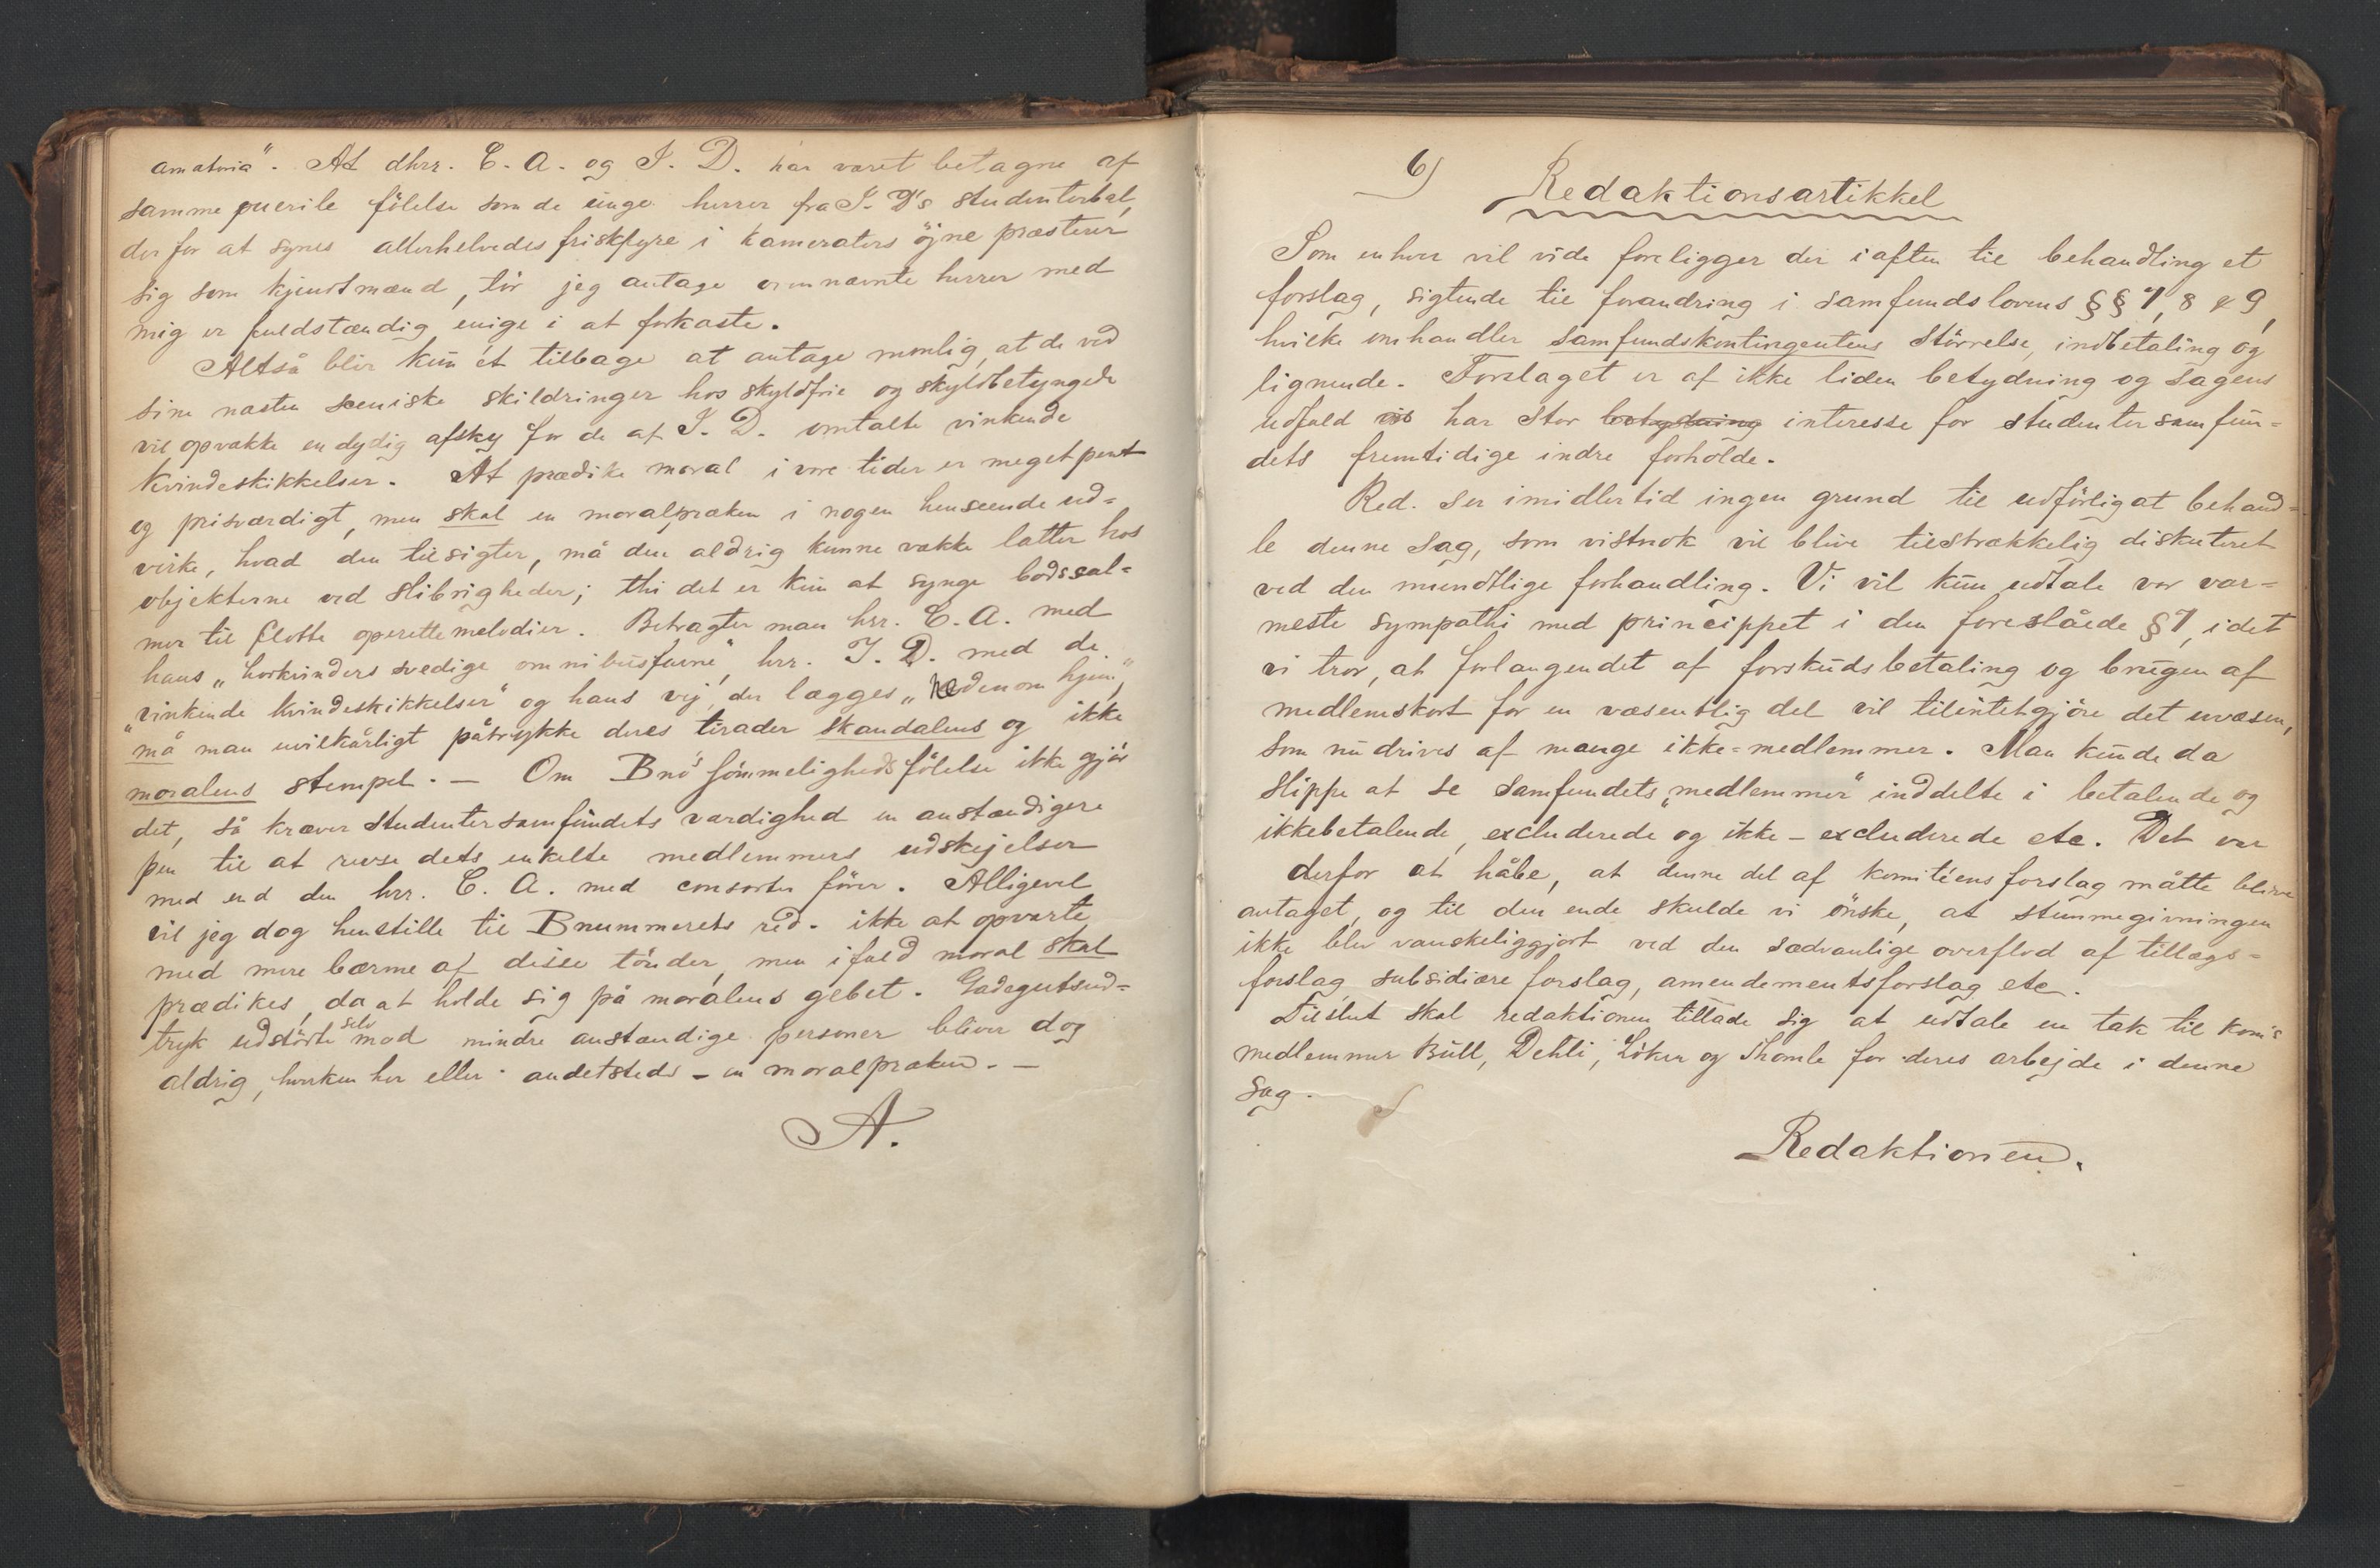 amatoria". At dhrr. C. A. og I. D. har været betagne af
samme puerile følelse som de unge herrer fra I. D's studenterbal,
der for at synes allerhelvedes friskfyre i kameraters öjne præsterer
sig som kjendtmænd, tör jeg antage ovennævnte herrer med
mig er fuldstændig enige i at forkaste.
Altså blir kun ét tilbage at antage nemlig, at de ved
sine næsten sceniske skildringer hos skyldfrie og skyldbetyngede
vil opvække en dydig afsky for de af I. D. omtalte vinkende
kvindeskikkelser. At prædike moral i vore tider er meget pent
og prisværdigt, men skal en moralpræken i nogen henseende ud=
virke, hvad den tilsigter, må den aldrig kunne vække latter hos
objekterne ved slibrigheder; thi det er kun at synge bodssal=
mer til flotte operettemelodier. Betragter man hrr. C. A. med
hans „horkvinders svedige omnibusfavne", hrr. I. D. med de
„vinkende kvindeskikkelser" og hans vej, der lægges „nedenom hjem",
må man uvilkårligt påtrykke deres tirader skandalens og ikke
moralens stempel. — Om Bnö's sömmelighedsfölelse ikke gjör
det, så kræver studentersamfundets værdighed en anstændigere
pen til at revse dets enkelte medlemmers udskejelser
med end den hrr. C. A. med consorter förer. Alligevel
vil jeg dog henstille til Bnummerets red. ikke at opvarte
med mere bærme af disse tönder, men ifald moral skal
prædikes, da at holde sig på moralens gebet. Gadegutsud=
tryk udstödte selv mod mindre anstændige personer bliver dog
aldrig, hverken her eller andetsteds – en moralpræken. —
A.
6) Redaktionsartikkel
Som enhver vil vide foreligger der iaften til behandling et
forslag, sigtende til forandring i samfundslovens §§ 7, 8 & 9,
hvilke omhandler samfundskontingentens störrelse, indbetaling og
lignende. Forslaget er af ikke liden betydning og sagens
udfald har stor betydning interesse for studentersamfun=
dets fremtidige indre forholde.
Red. ser imidlertid ingen grund til udförligat behand=
le denne sag, som vistnok vil blive tilstrækkelig diskuteret
ved den mundtlige forhandling. Vi vil kun udtale vor var=
meste sympathi med princippet i den foreslåede § 7, idet
vi tror, at forlangendet af forskudsbetaling og brugen af
medlemskort for en væsentlig del vil tilintetgjöre det uvæsen,
som nu drives af mange ikke=medlemmer. Man kunde da
slippe at se samfundets „medlemmer" inddelte i betalende og
ikkebetalende, excluderede og ikke – excluderede etc. Det var
derfor at håbe, at denne del af komitéens forslag måtte blive
antaget, og til den ende skulde vi önske, at stemmegivningen
ikke blev vanskeliggjort ved den sædvanlige overflod af tillægs=
forslag subsidiære forslag, amendementsforslag etc.
Tilslut skal redaktionen tillade sig at udtale en tak til kom's
medlemmer Bull, Dehli, Löken og Thomle for deres arbejde i denne
sag.
Redaktionen.